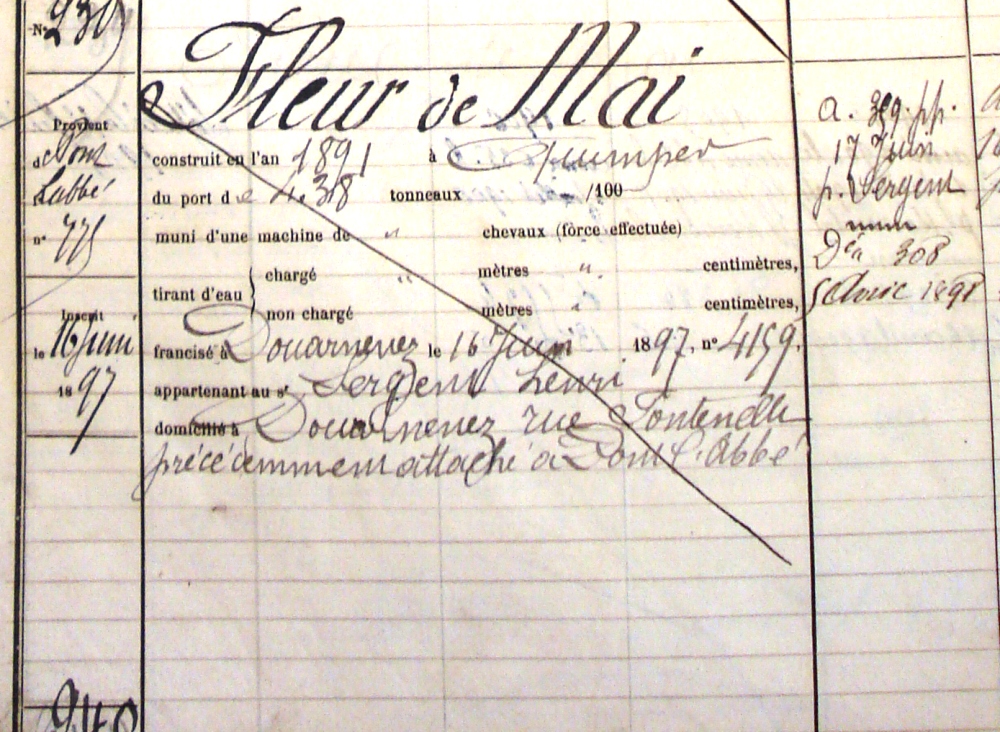 N° 239
Fleur de Mai
Provient
de Pont
Labbé
n° 775
Inscrit
le 16 Juin
1897
construit en l'an 1891 à Quimper
du port de 4.38 tonneaux /100
muni d'une machine de " chevaux (force effectuée)
tirant d'eau { chargé " mètres " centimètres,
non chargé mètres " centimètres,
francisé à Douarnenez le 16 Juin 1897, n° 4159,
appartenant au sr Sergent Henri
domicilié à Douarnenez rue Fontenelle
précécemment attaché à Pont l'Abbé
17 Juin
p. Sergent
308
1898
240